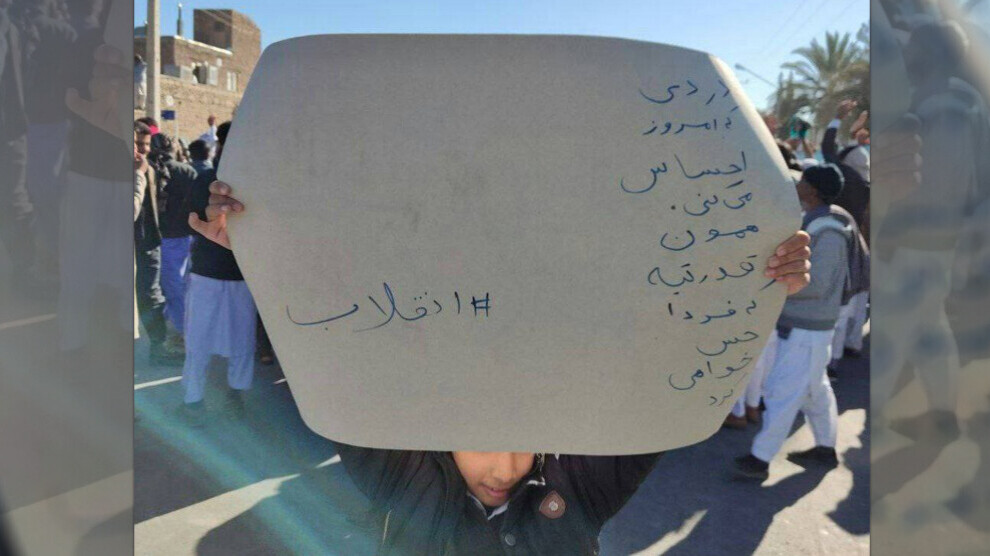 دردی
که امروز
احساس
می‌کنی.
همون
قدرتیه
که فردا
حس
خواهی
کرد
#انقلاب